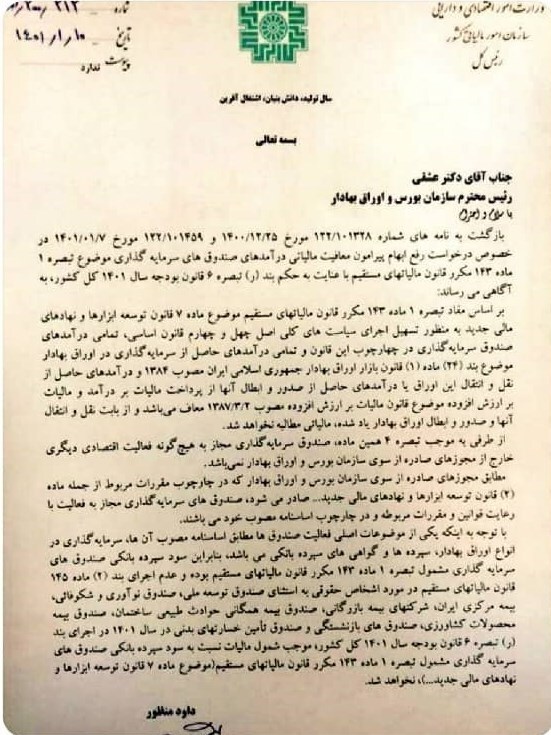 وزارت امور اقتصادی و دارایی
سازمان امور مالیاتی کشور
رئیس کل
شماره ۲۰۰/۲۱۲
تاریخ ۱۴۰۱/۱/۱۰
پیوست ندارد
سال تولید، دانش بنیان، اشتغال آفرین
بسمه تعالی
جناب آقای دکتر عشقی
رئیس محترم سازمان بورس و اوراق بهادار
با سلام و احترام
بازگشت به نامه های شماره ۱۲۲/۱۰۱۳۲۸ مورخ ۱۴۰۰/۱۲/۲۵ و ۱۲۲/۱۰۱۴۵۹ مورخ ۱۴۰۱/۰۱/۷ در
خصوص درخواست رفع ابهام پیرامون معافیت مالیاتی درآمدهای صندوق های سرمایه گذاری موضوع تبصره ۱
ماده ۱۴۳ مکرر قانون مالیاتهای مستقیم با عنایت به حکم بند (ر) تبصره ۶ قانون بودجه سال ۱۴۰۱ کل کشور، به
آگاهی می رساند:
بر اساس مفاد تبصره ۱ ماده ۱۴۳ مکرر قانون مالیاتهای مستقیم موضوع ماده ۷ قانون توسعه ابزارها و نهادهای
مالی جدید به منظور تسهیل اجرای سیاست های کلی اصل چهل و چهارم قانون اساسی، تمامی درآمدهای
صندوق سرمایه‌گذاری در چهارچوب این قانون و تمامی درآمدهای حاصل از سرمایه‌گذاری در اوراق بهادار
موضوع بند (۲۴) ماده (۱) قانون بازار اوراق بهادار جمهوری اسلامی ایران مصوب ۱۳۸۴ و درآمدهای حاصل از
نقل و انتقال این اوراق یا درآمدهای حاصل از صدور و ابطال آنها از پرداخت مالیات بر درآمد و مالیات
بر ارزش افزوده موضوع قانون مالیات بر ارزش افزوده مصوب ۱۳۸۷/۳/۲ معاف می‌باشد و از بابت نقل و انتقال
آنها و صدور و ابطال اوراق بهادار یاد شده، مالیاتی مطالبه نخواهد شد.
از طرفی به موجب تبصره ۴ همین ماده، صندوق سرمایه‌گذاری مجاز به هیچ‌گونه فعالیت اقتصادی دیگری
خارج از مجوزهای صادره از سوی سازمان بورس و اوراق بهادار نمی‌باشد.
مطابق مجوزهای صادره از سوی سازمان بورس و اوراق بهادار که در چارچوب مقررات مربوط از جمله ماده
(۲) قانون توسعه ابزارها و نهادهای مالی جدید... صادر می شود، صندوق های سرمایه گذاری مجاز به فعالیت با
رعایت قوانین و مقررات مربوطه و در چارچوب اساسنامه مصوب خود می باشند.
با توجه به اینکه یکی از موضوعات اصلی فعالیت صندوق ها مطابق اساسنامه مصوب آن ها، سرمایه‌گذاری در
انواع اوراق بهادار، سپرده ها و گواهی های سپرده بانکی می باشد، بنابراین سود سپرده بانکی صندوق های
سرمایه گذاری مشمول تبصره ۱ ماده ۱۴۳ مکرر قانون مالیاتهای مستقیم بوده و عدم اجرای بند (۲) ماده ۱۴۵
قانون مالیاتهای مستقیم در مورد اشخاص حقوقی به استثنای صندوق توسعه ملی، صندوق نوآوری و شکوفائی،
بیمه مرکزی ایران، شرکتهای بیمه بازرگانی، صندوق بیمه همگانی حوادث طبیعی ساختمان، صندوق بیمه
محصولات کشاورزی، صندوق های بازنشستگی و صندوق تأمین خسارتهای بدنی در سال ۱۴۰۱ در اجرای بند
(ر) تبصره ۶ قانون بودجه سال ۱۴۰۱ کل کشور، موجب شمول مالیات نسبت به سود سپرده بانکی صندوق های
سرمایه گذاری مشمول تبصره ۱ ماده ۱۴۳ مکرر قانون مالیاتهای مستقیم(موضوع ماده ۷ قانون توسعه ابزارها و
نهادهای مالی جدید...)، نخواهد شد.
داود منظور